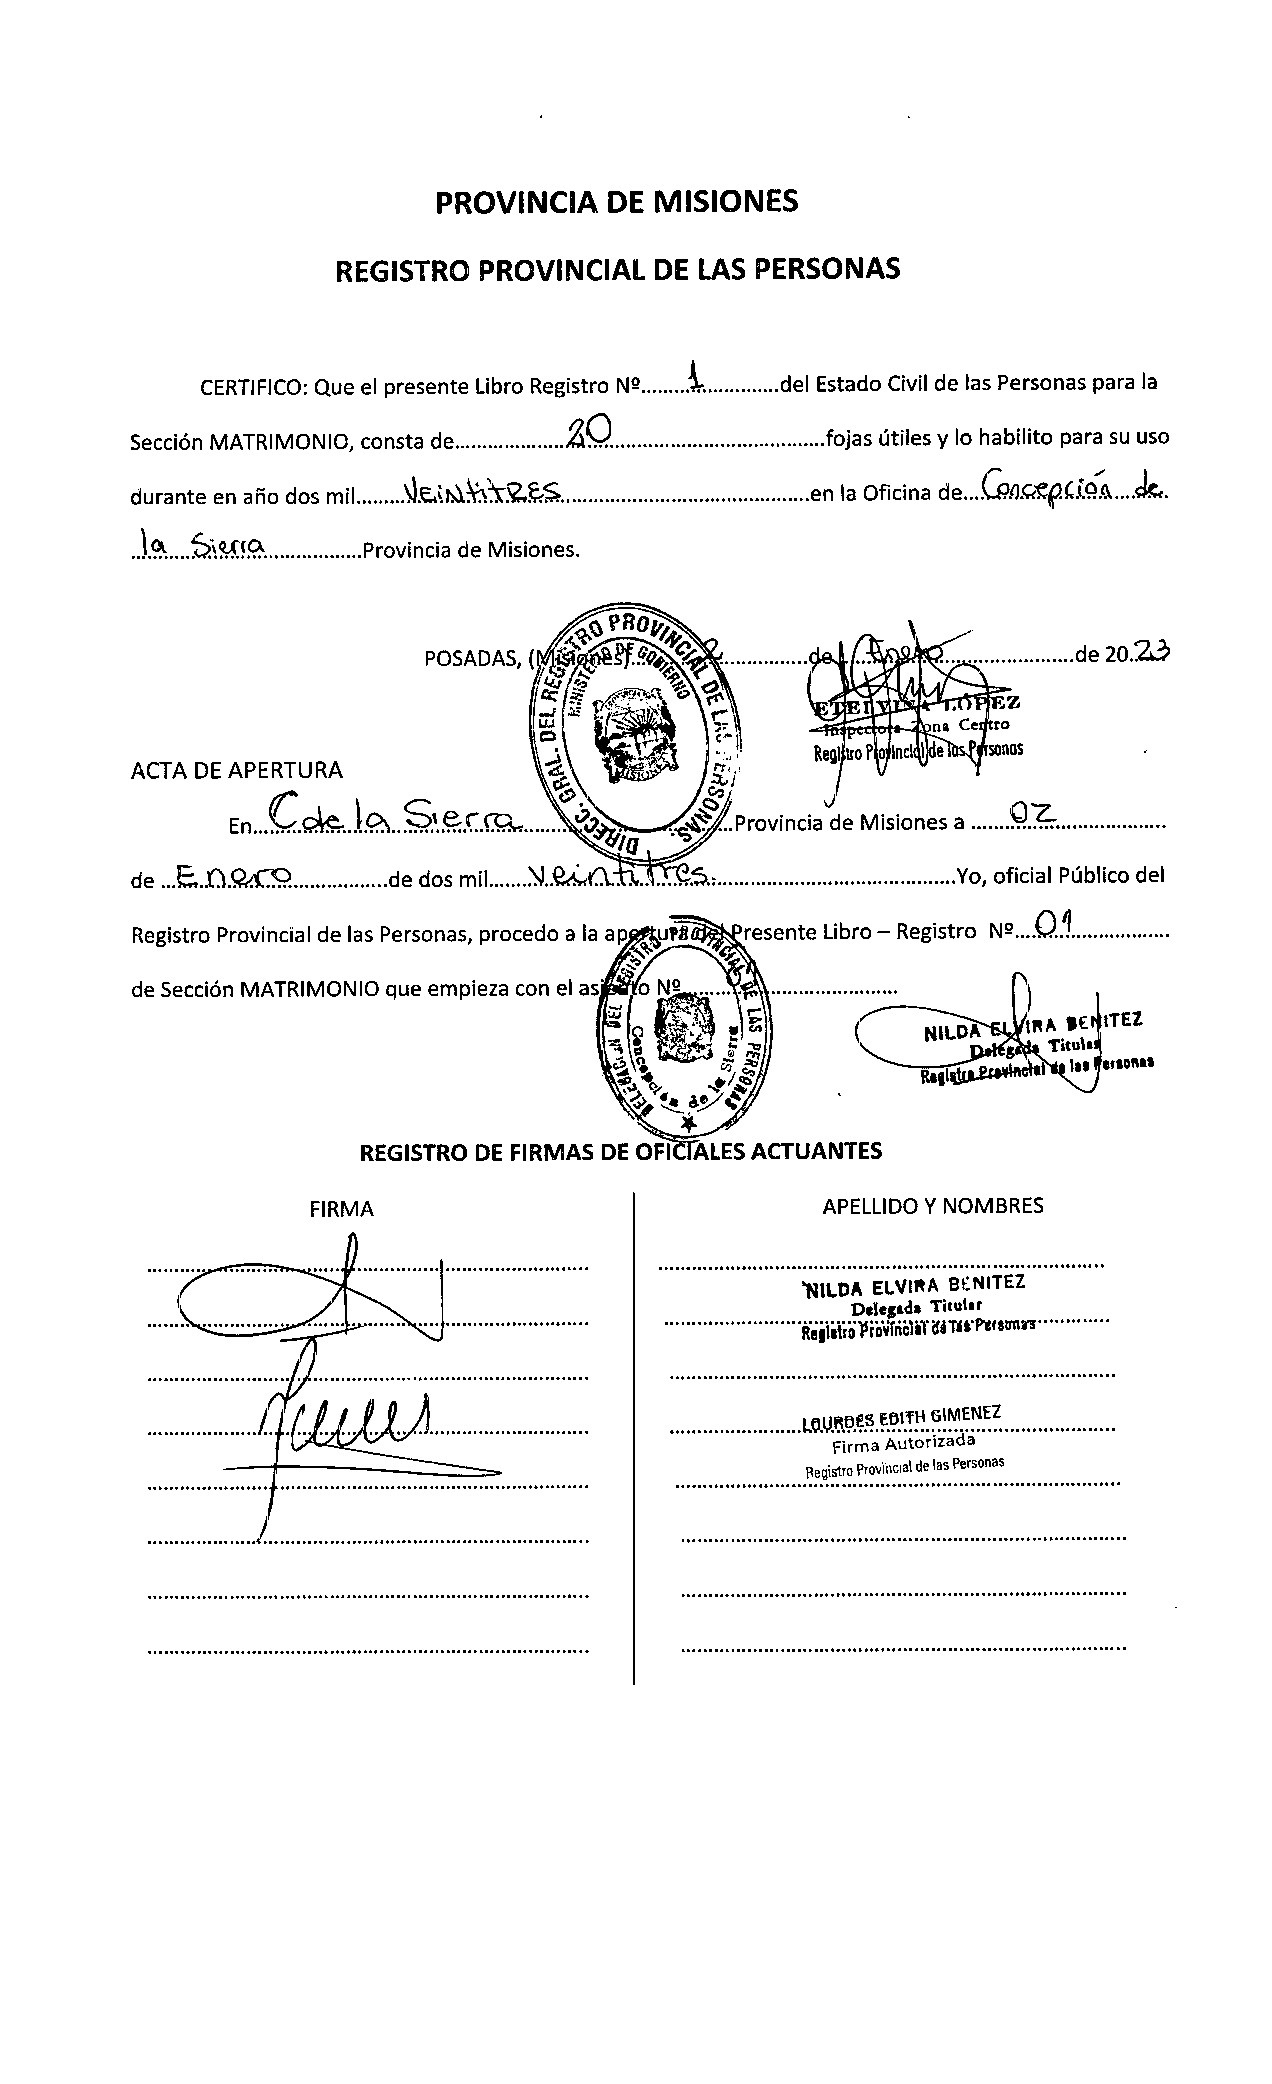 PROVINCIA DE MISIONES
REGISTRO PROVINCIAL DE LAS PERSONAS
CERTIFICO: Que el presente Libro Registro Nº........1.............del Estado Civil de las Personas para la
Sección MATRIMONIO, consta de..................20...................................fojas útiles y lo habilito para su uso
durante en año dos mil........VEiNtitRES.........................................en la Oficina de...Concepción de
la Sierra................Provincia de Misiones.
POSADAS, (Misiones)..............de...Enero......................de 20..23
DIRECC. GRAL. DEL REGISTRO PROVINCIAL DE LAS PERSONAS.
MINISTERIO DE GOBIERNO
MISIONES
ETELVINA LÓPEZ
Inspectora Zona Centro
Registro Provincial de las Personas
ACTA DE APERTURA
En....C de la Sierra.............Provincia de Misiones a .......02...................
de ...Enero................de dos mil.......Veintitres.........................................Yo, oficial Público del
Registro Provincial de las Personas, procedo a la apertura del Presente Libro – Registro Nº....01.................
de Sección MATRIMONIO que empieza con el asiento Nº..................................
DEL REGISTRO PROVINCIAL DE LAS PERSONAS
Concepción de la Sierra
NILDA ELVIRA BENITEZ
Delegada Titular
Registro Provincial de las Personas
REGISTRO DE FIRMAS DE OFICIALES ACTUANTES
FIRMA
APELLIDO Y NOMBRES
NILDA ELVIRA BENITEZ
Delegada Titular
Registro Provincial de las Personas
LOURDES EDITH GIMENEZ
Firma Autorizada
Registro Provincial de las Personas